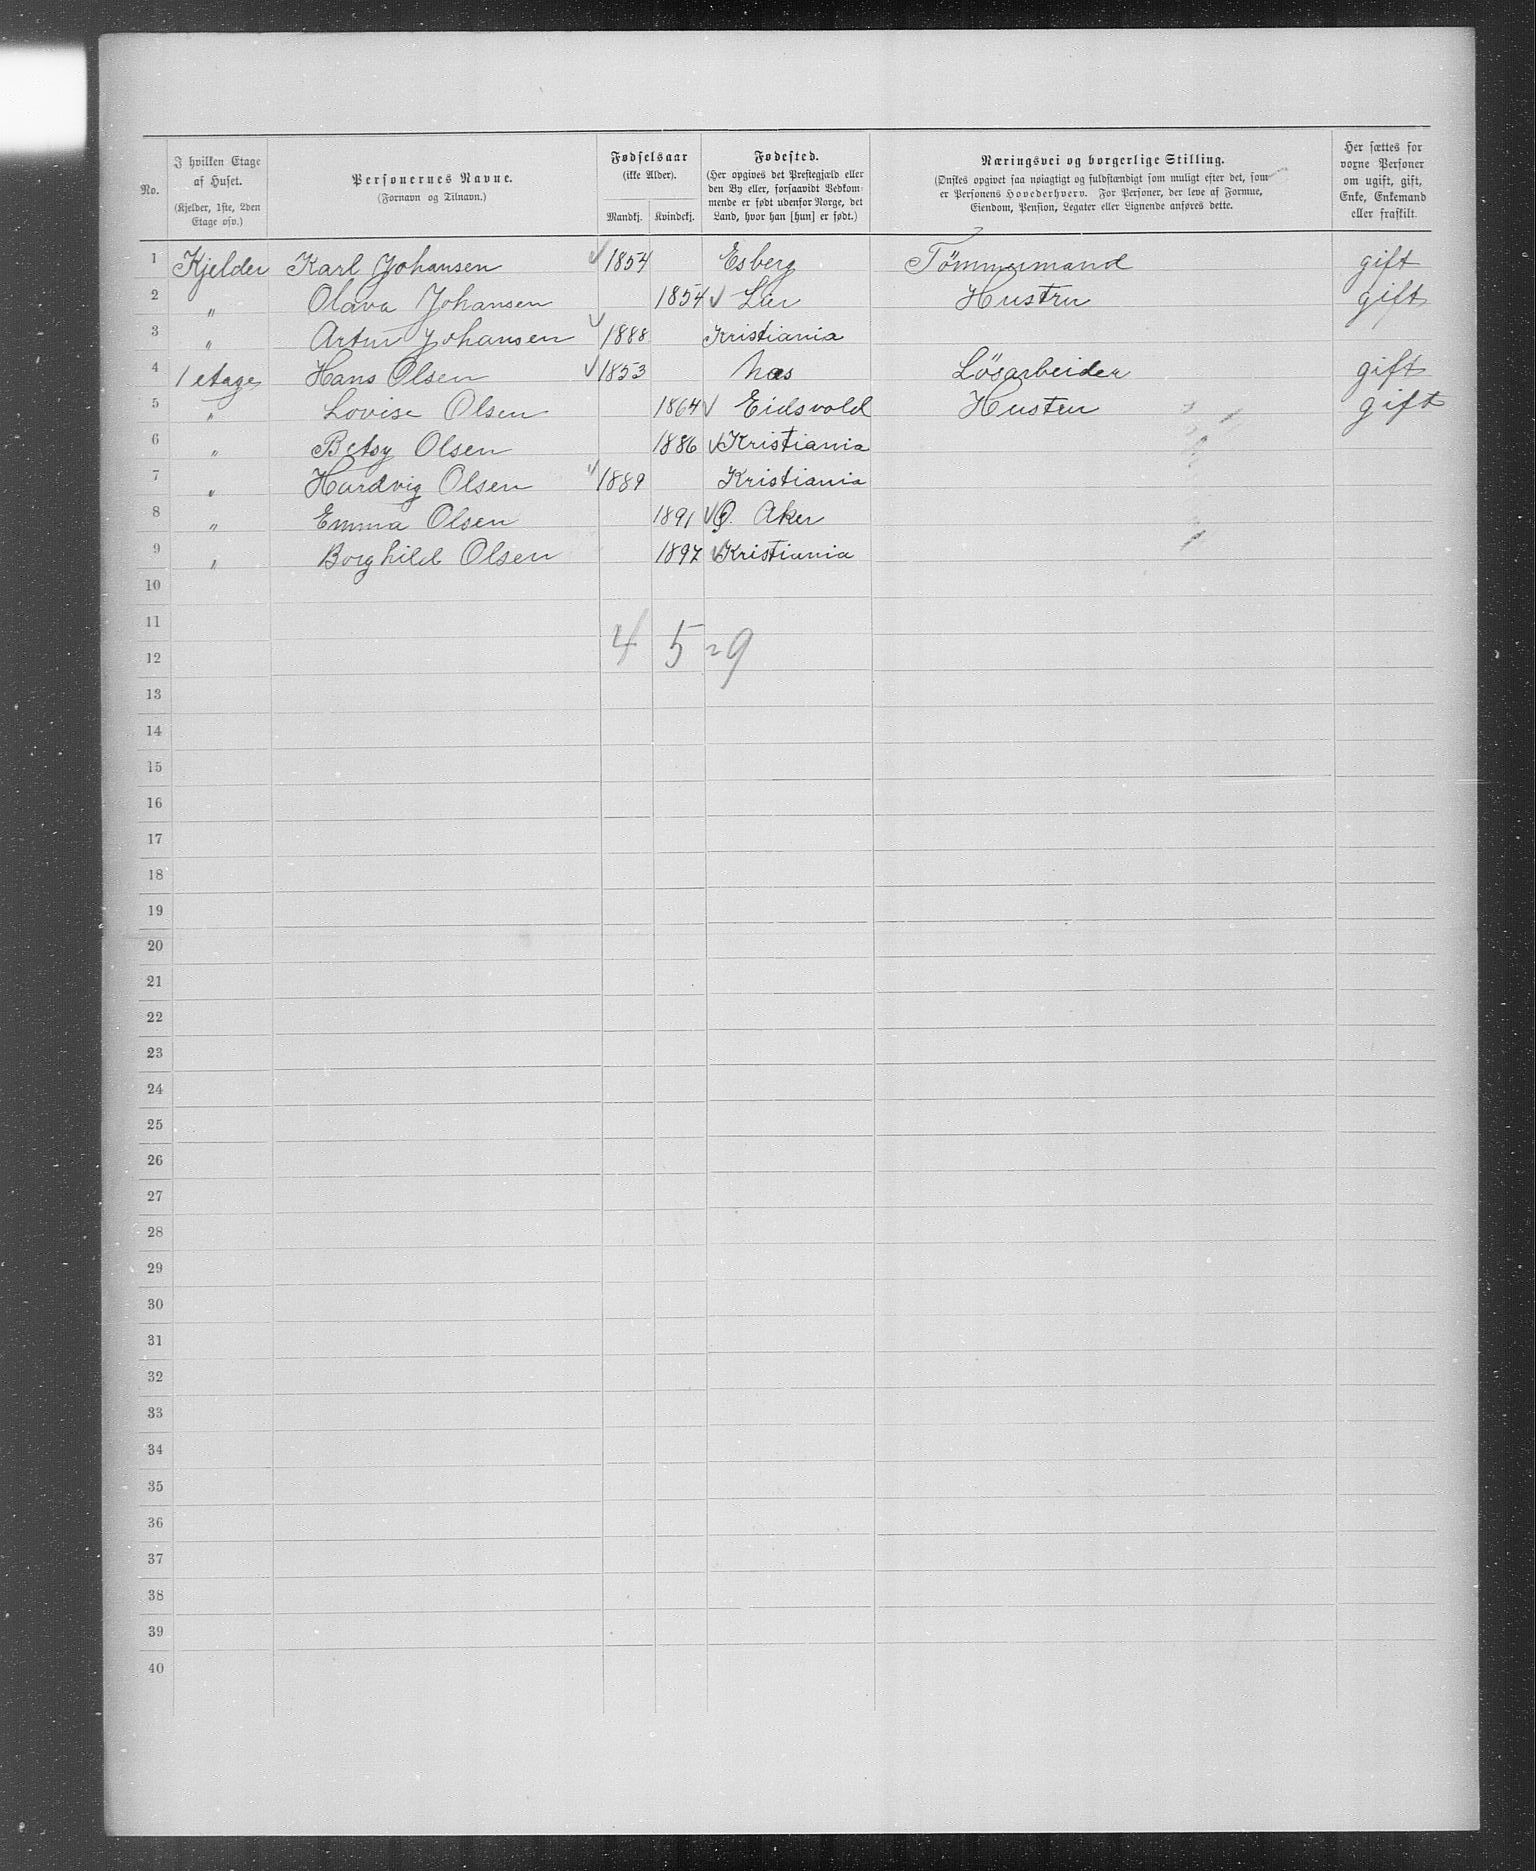 No.
I hvilken Etage af Huset. (Kjelder, 1ste, 2den Etage osv.)
Personernes Navne. (Fornavn og Tilnavn.)
Fødselsaar (ikke Alder).
Mandkj. Kvindekj.
Fødested. (Her opgives det Prestegjæld eller den By eller, forsaavidt Vedkommende er født udenfor Norge, det Land, hvor han [hun] er født.)
Næringsvei og borgerlige Stilling. (Ønskes opgivet saa nøiagtigt og fuldstændigt som muligt efter det, som er Personens Hovederhverv. For Personer, der leve af Formue, Eiendom, Pension, Legater eller Lignende anføres dette.
Her sættes for voxne Personer om ugift, gift, Enke, Enkemand eller fraskilt.
1 Kjelder Karl Johansen 1854 Esberg Tömmermand gift
2 " Olava Johansen 1854 Lier Hustru gift
3 " Artur Johansen 1888 Kristiania
4 1 etage Hans Olsen 1853 Næs Lösarbeider gift
5 " Lovise Olsen 1864 Eidsvold Hustru gift
6 " Betsy Olsen 1886 Kristiania
7 " Hardvig Olsen 1889 Kristiania
8 " Emma Olsen 1891 Ø. Aker
9 " Borghild Olsen 1897 Kristiania
10
11
4 5 = 9
12
13
14
15
16
17
18
19
20
21
22
23
24
25
26
27
28
29
30
31
32
33
34
35
36
37
38
39
40